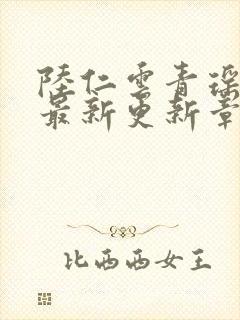 陸仁雲青瑶
最新更新章
比西西女王